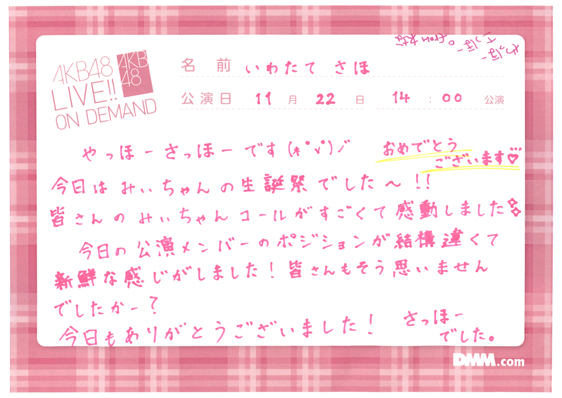 AKB48
LIVE!!
ON DEMAND
AKB
48
名 前 いわたて さほ
公演日 11 月 22 日 14 : 00 公演
やっほーさっほーです
おめでとう
ございます♡
今日はみぃちゃんの生誕祭でした〜!!
皆さんのみぃちゃんコールがすごくて感動しました
今日の公演メンバーのポジションが結構違くて
新鮮な感じがしました！皆さんもそう思いません
でしたかー？
今日もありがとうございました！
さっほー
でした。
DMM.com